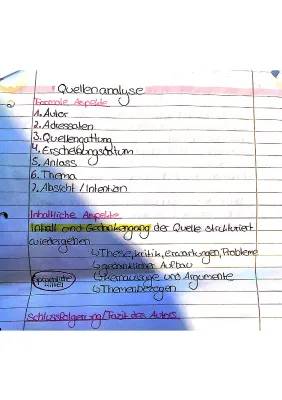 Quellenanalyse
Formale Aspekte
1. Autor
2. Adressaten
3. Quellengattung
4. Erscheinungsdatum
5. Anlass
6. Thema
7. Absicht / Intention
Inhaltliche Aspekte
Inhalt und Gedankengang der Quelle strukturiert
wiedergeben
↳ These, Kritik, Erwartungen, Probleme
↳ gedanklicher Aufbau
sprachliche Mittel ↳ Kernaussage und Argumente
↳ Themenbezogen
Schlussfolgerung / Fazit des Autors